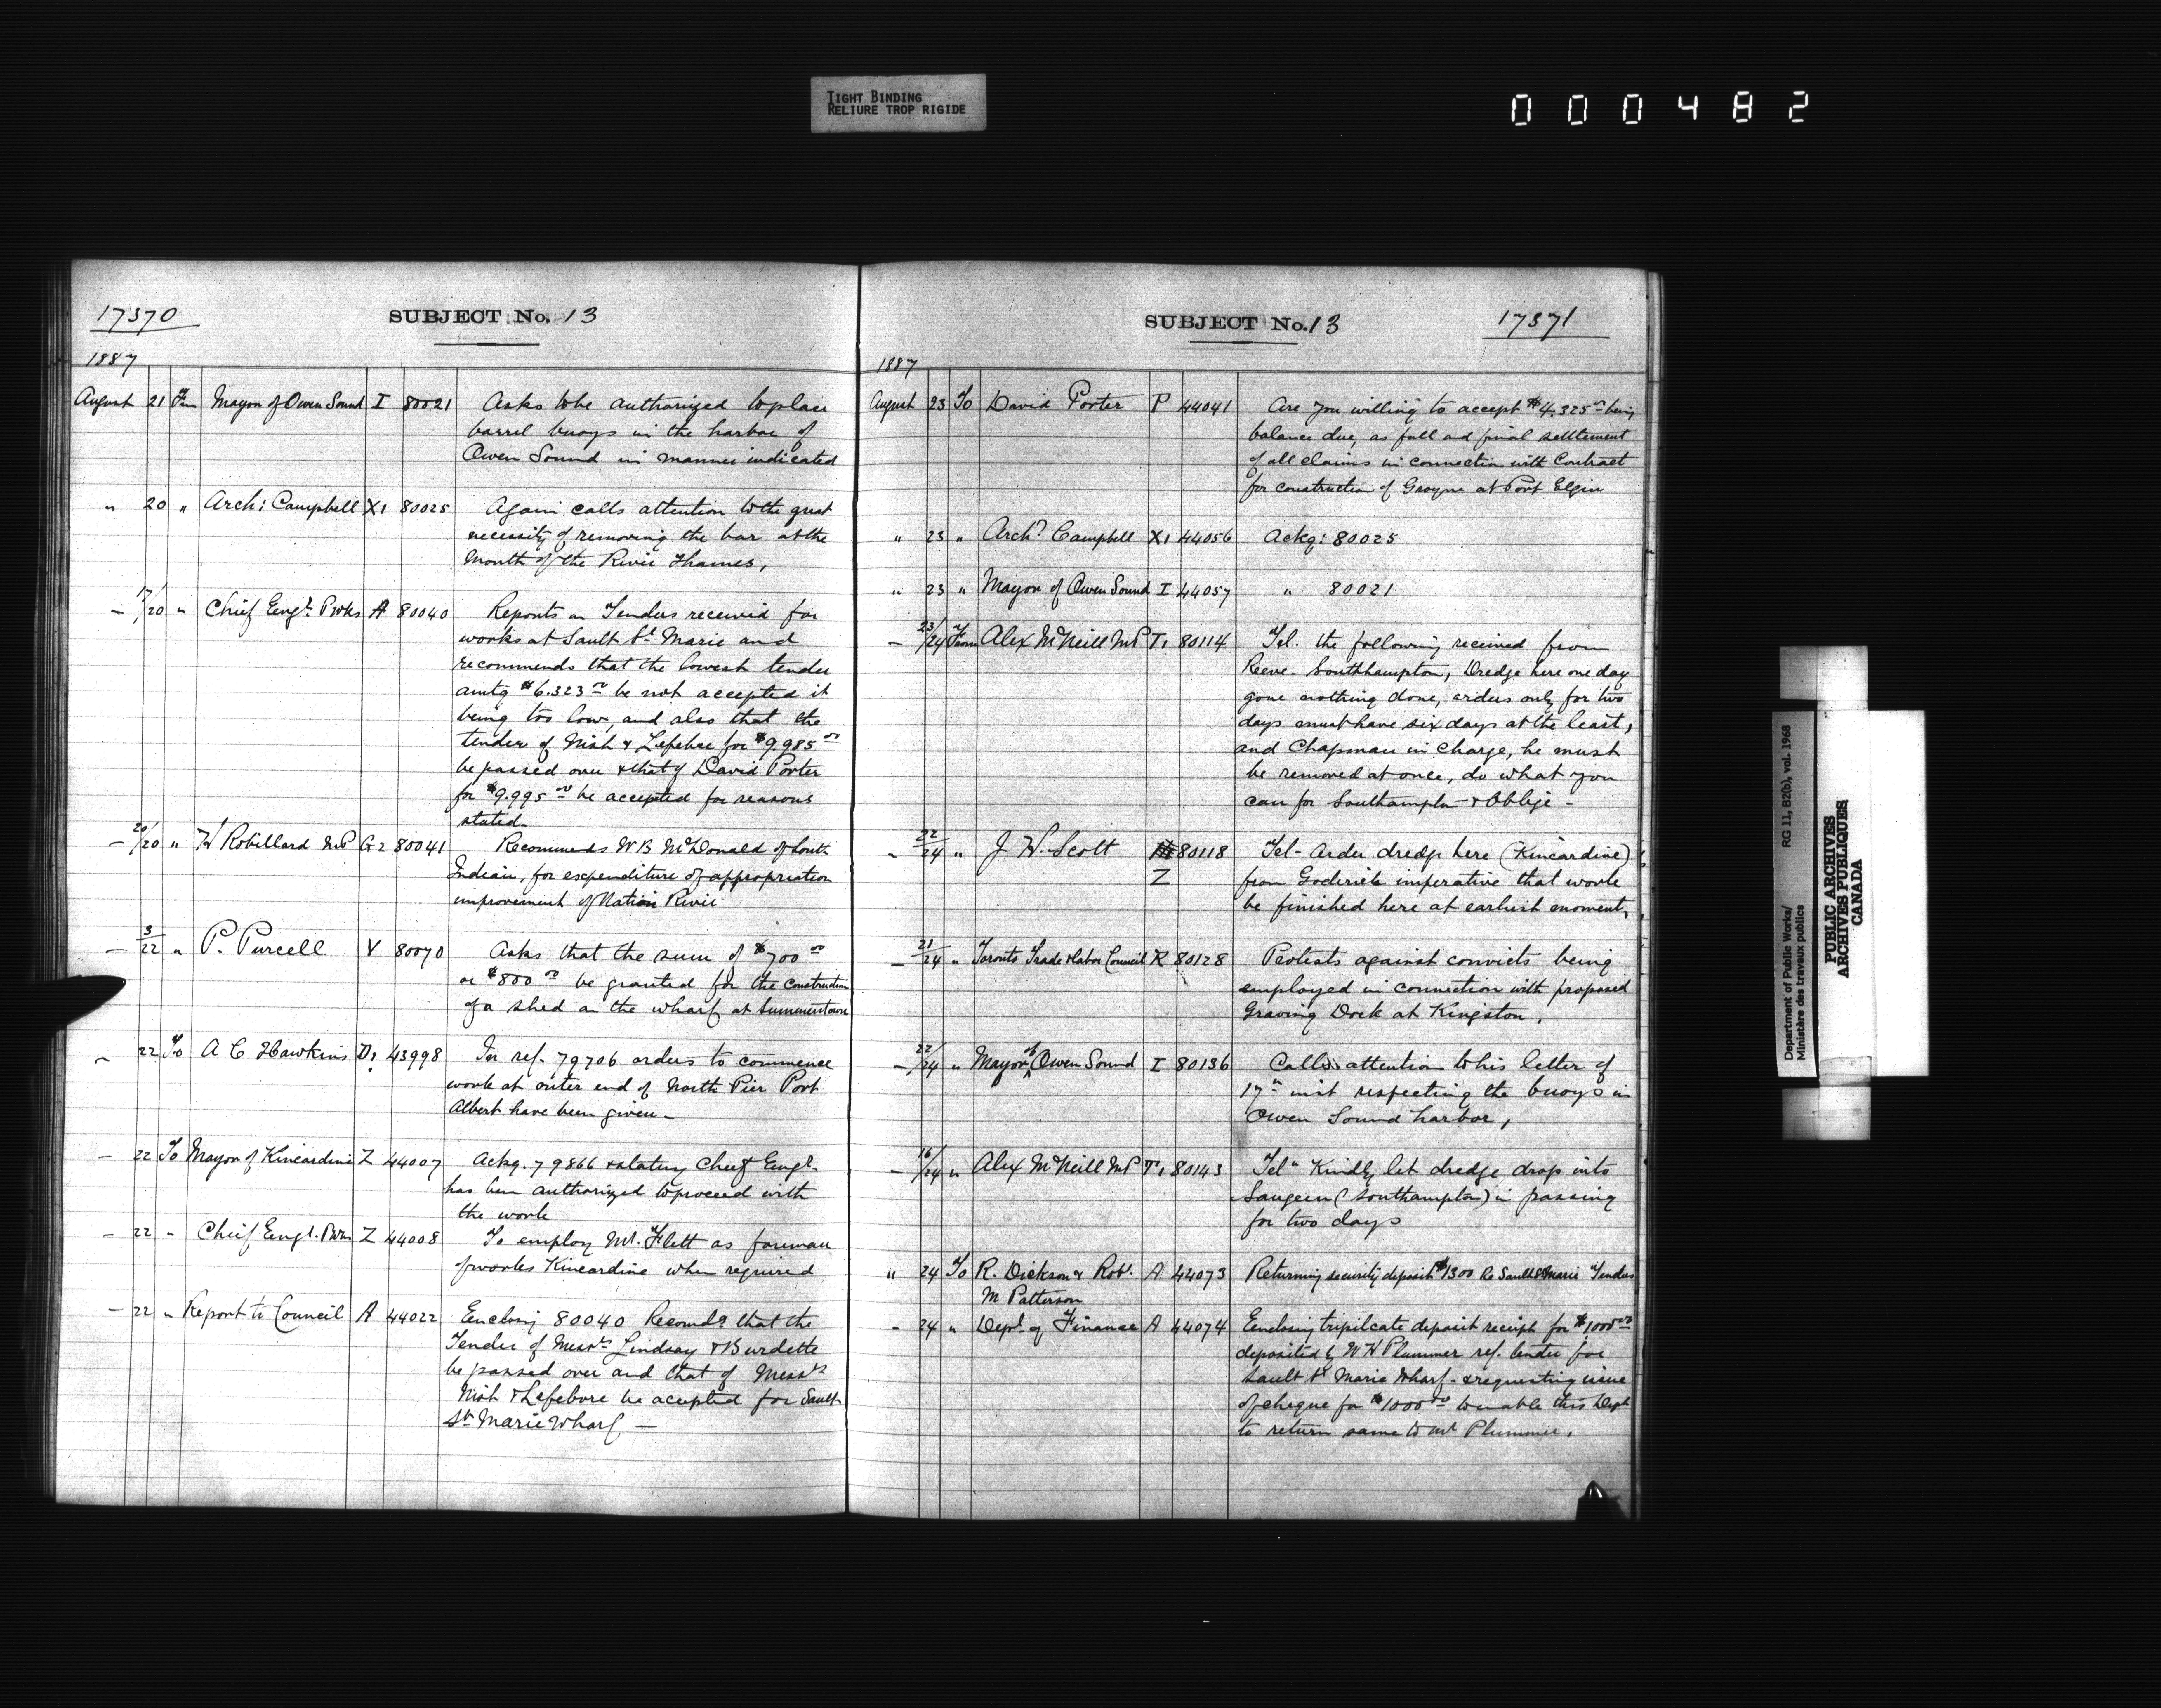 TIGHT BINDING
RELIURE TROP RIGIDE
000482
17370
SUBJECT No. 13
1887
August 21 From Mayor of Owen Sound I 80021 Asks to be authorized to place
barrel buoys in the harbor of
Owen Sound in manner indicated
" 20 " Arch: Campbell X1 80025 Again calls attention to the great
necessity of removing the bar at the
mouth of the River Thames,
- 17/20 " Chief Engr. P Wks A 80040 Reports on Tenders received for
works at Sault St. Marie and
recommends that the lowest tender
amtg $6.323.00 be not accepted it
being too low, and also that the
tender of Nish & Lefebre for $9.985.00
be passed over & that of David Porter
for $9.995.00 be accepted for reasons
stated.
- 20/20 " H Robillard MP G2 80041 Recommends W B McDonald of South
Indian, for expenditure of appropriation
improvement of Nation River
- 3/22 " P. Purcell V 80070 Asks that the sum of $700.00
or $800.00 be granted for the construction
of a shed on the wharf at Summerstown
- 22 To A C Hawkins D2 43998 In ref. 79706 orders to commence
work at outer end of North Pier Port
Albert have been given -
- 22 To Mayor of Kincardine Z 44007 Ackg. 79866 & stating Chief Engr.
has been authorized to proceed with
the work
- 22 " Chief Engr. P Wks Z 44008 To employ Mr. Flett as foreman
of works Kincardine when required
- 22 " Report to Council A 44022 Enclosing 80040 Recomds that the
Tender of Messrs Lindsay & Burdette
be passed over and that of Messrs
Nish & Lefebvre be accepted for Sault
St. Marie Wharf -
SUBJECT No. 13
17371
1887
August 23 To David Porter P 44041 Are you willing to accept $4.325.00 being
balance due, as full and final settlement
of all claims in connection with Contract
for construction of Groyne at Port Elgin
" 23 " Archd. Campbell X1 44056 Ackg: 80025
" 23 " Mayor of Owen Sound I 44057 " 80021
- 23/24 From Alex McNeill MP T1 80114 Tel. the following received from
Reeve. Southhampton, Dredge here one day
gone nothing done, orders only for two
days must have six days at the least,
and Chapman in charge, he must
be removed at once, do what you
can for Southampton & Oblige -
- 22/24 " J W. Scott 80118 Tel - Order dredge here (Kincardine)
Z from Goderich imperative that work
be finished here at earliest moment,
- 21/24 " Toronto Trade & Labor Council R 80128 Protests against convicts being
employed in connection with proposed
Graving Dock at Kingston,
- 22/24 " Mayor of Owen Sound I 80136 Calls attention to his letter of
17th inst respecting the buoys in
Owen Sound harbor,
- 16/24 " Alex McNeill MP T1 80143 Tel " Kindly let dredge drop into
Saugeen (Southampton) in passing
for two days
" 24 To R. Dickson & Robt. A 44073 Returning security deposit $1300 Re Sault St Marie Tenders
M Patterson
- 24 " Dept. of Finance A 44074 Enclosing tripilcate deposit receipt for $1000.00
deposited by W H Plummer ref. tender for
Sault St Marie Wharf. & requesting issue
of cheque for $1000.00 to enable this Dept
to return same to Mr Plummer.
Department of Public Works/ RG 11, B2(b), vol. 1968
Ministère des travaux publics
PUBLIC ARCHIVES
ARCHIVES PUBLIQUES
CANADA